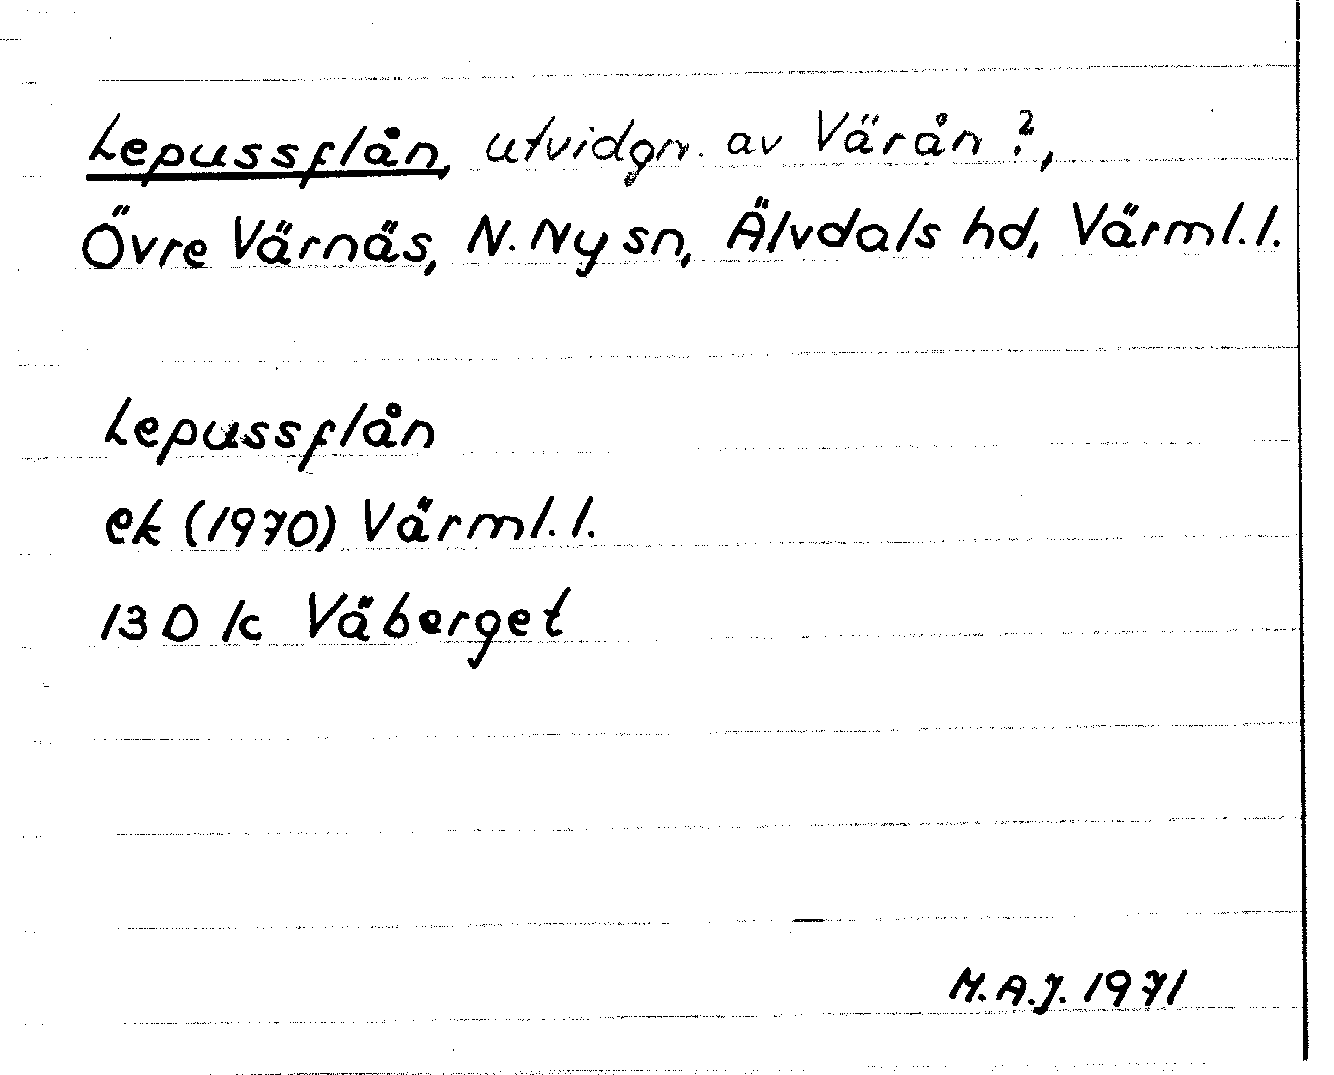 Lepussflån, utvidgn. av Värån ?,
Övre Värnäs, N. Ny sn, Älvdals hd, Värml. l.
Lepussflån
ek (1970) Värml. l.
13 D 1c Våberget
M.A.J. 1971